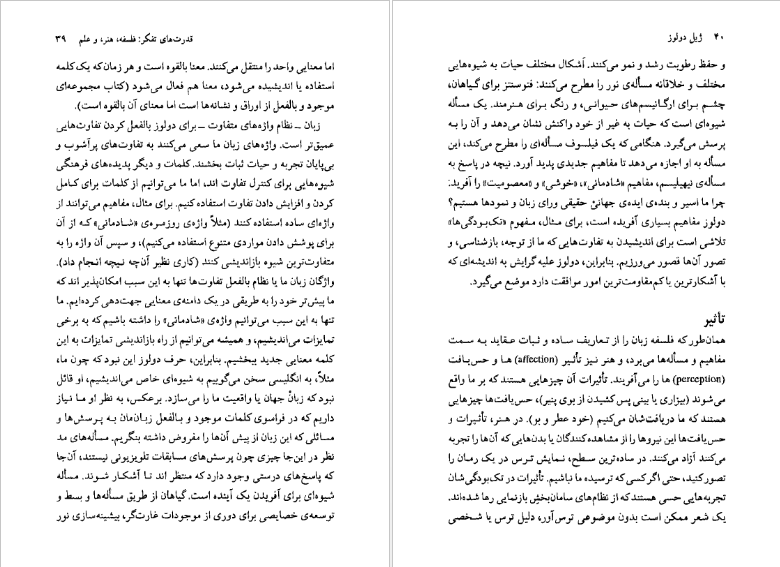 قدرت‌های تفکر: فلسفه، هنر، و علم ۳۹
اما معنایی واحد را منتقل می‌کنند. معنا بالقوه است و هر زمان که یک کلمه
استفاده یا اندیشیده می‌شود، معنا هم فعال می‌شود (کتاب مجموعه‌ای
موجود و بالفعل از اوراق و نشانه‌ها است اما معنای آن بالقوه است).
زبان ــ نظام واژه‌های متفاوت ــ برای دولوز بالفعل کردن تفاوت‌هایی
عمیق‌تر است. واژه‌های زبان ما سعی می‌کنند به تفاوت‌های پرآشوب و
بی‌پایان تجربه و حیات ثبات بخشند. کلمات و دیگر پدیده‌های فرهنگی
شیوه‌هایی برای کنترل تفاوت اند، اما ما می‌توانیم از کلمات برای کامل
کردن و افزایش دادن تفاوت استفاده کنیم. برای مثال، مفاهیم می‌توانند از
واژه‌ای ساده استفاده کنند (مثلاً واژه‌ی روزمره‌ی «شادمانی» که از آن
برای پوشش دادن مواردی متنوع استفاده می‌کنیم)، و سپس آن واژه را به
متفاوت‌ترین شیوه بازاندیشی کنند (کاری نظیر آن‌چه نیچه انجام داد).
واژگان زبان ما یا نظام بالفعل تفاوت‌ها تنها به این سبب امکان‌پذیر اند که
ما پیش‌تر خود را به طریقی در یک دامنه‌ی معنایی جهت‌دهی کرده‌ایم. ما
تنها به این سبب می‌توانیم واژه‌ی «شادمانی» را داشته باشیم که به برخی
تمایزات می‌اندیشیم، و همیشه می‌توانیم از راه بازاندیشی تمایزات به این
کلمه معنایی جدید ببخشیم. بنابراین، حرف دولوز این نبود که چون ما،
مثلاً، به انگلیسی سخن می‌گوییم به شیوه‌ای خاص می‌اندیشیم، او قائل
نبود که زبانْ جهان یا واقعیت ما را می‌سازد. برعکس، به نظر او ما نیاز
داریم که در فراسوی کلمات موجود و بالفعل زبان‌مان به پرسش‌ها و
مسائلی که این زبان از پیش آن‌ها را مفروض داشته بنگریم. مسأله‌های مد
نظر در این‌جا چیزی چون پرسش‌های مسابقات تلویزیونی نیستند، آن‌جا
که پاسخ‌های درستی وجود دارد که منتظر اند تا آشکار شوند. مسأله
شیوه‌ای برای آفریدن یک آینده است. گیاهان از طریق مسأله‌ها و بسط و
توسعه‌ی خصایصی برای دوری از موجودات غارت‌گر، بیشینه‌سازی نور
۴۰ ژیل دولوز
و حفظ رطوبت رشد و نمو می‌کنند. اَشکال مختلف حیات به شیوه‌هایی
مختلف و خلاقانه مسأله‌ی نور را مطرح می‌کنند: فتوسنتز برای گیاهان،
چشم برای ارگانیسم‌های حیوانی، و رنگ برای هنرمند. یک مسأله
شیوه‌ای است که حیات به غیر از خود واکنش نشان می‌دهد و آن را به
پرسش می‌گیرد. هنگامی که یک فیلسوف مسأله‌ای را مطرح می‌کند، این
مسأله به او اجازه می‌دهد تا مفاهیم جدیدی پدید آورد. نیچه در پاسخ به
مسأله‌ی نیهیلیسم، مفاهیم «شادمانی»، «خوشی» و «معصومیت» را آفرید:
چرا ما اسیر و بنده‌ی ایده‌ی جهانیْ حقیقی ورای زبان و نمودها هستیم؟
دولوز مفاهیم بسیاری آفریده است، برای مثال، مفهوم «تک‌بودگی‌ها»
تلاشی است برای اندیشیدن به تفاوت‌هایی که ما از توجه، بازشناسی، و
تصور آن‌ها قصور می‌ورزیم. بنابراین، دولوز علیه گرایش به اندیشه‌ای که
با آشکارترین یا کم‌مقاومت‌ترین امور موافقت دارد موضع می‌گیرد.
تأثیر
همان‌طور که فلسفه زبان را از تعاریف ساده و ثبات عقاید به سمت
مفاهیم و مسأله‌ها می‌برد، و هنر نیز تأثیر (affection) ها و حس‌یافت
(perception) ها را می‌آفریند. تأثیرات آن چیزهایی هستند که بر ما واقع
می‌شوند (بیزاری یا بینی پس کشیدن از بوی پنیر)، حس‌یافت‌ها چیزهایی
هستند که ما دریافت‌شان می‌کنیم (خود عطر و بو). در هنر، تأثیرات و
حس‌یافت‌ها این نیروها را از مشاهده‌کنندگان یا بدن‌هایی که آن‌ها را تجربه
می‌کنند آزاد می‌کنند. در ساده‌ترین سطح، نمایش ترس در یک رمان را
تصور کنید، حتی اگر کسی که ترسیده ما نباشیم. تأثیرات در تک‌بودگی‌شان
تجربه‌هایی حسی هستند که از نظام‌های سامان‌بخشِ بازنمایی رها شده‌اند.
یک شعر ممکن است بدون موضوعی ترس‌آور، دلیل ترس یا شخصی